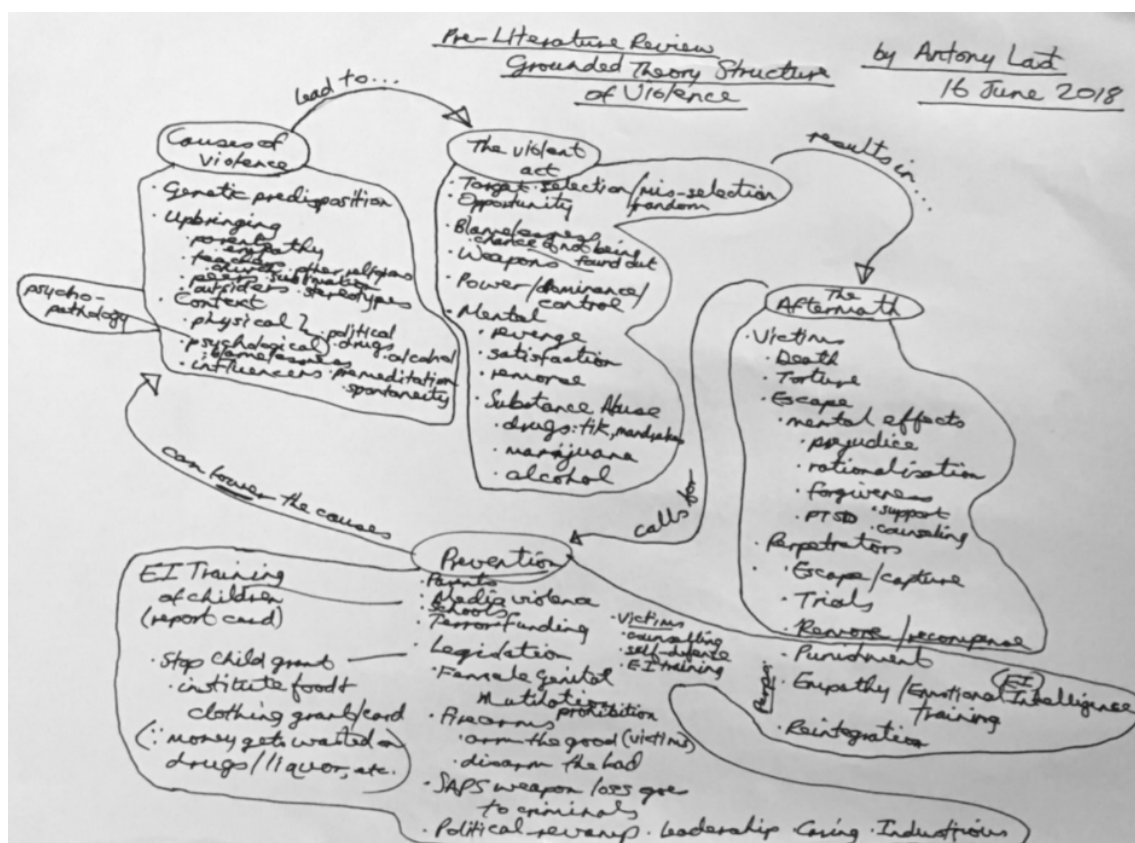 Pre-Literature Review
Grounded Theory Structure
of Violence
by Antony Last
16 June 2018
lead to...
Causes of
violence
· Genetic predisposition
· Upbringing
· parents
· empathy
· teachers
· church · other religions
· peers · sublimation
· outsiders · stereotypes
· Context
· physical · political
· psychological · drugs · alcohol
· blamelessness
· influencers · premeditation
· spontaneity
psycho-
pathology
The violent
act
· Target selection/mis-selection
random
· Opportunity
· Blamelessness
· chance of not being
found out
· Weapons
· Power/dominance/
control
· Mental
· revenge
· satisfaction
· remorse
· Substance Abuse
· drugs: tik,
· marrijuana
· alcohol
results in...
The
Aftermath
· Victims
· Death
· Torture
· Escape
· mental effects
· prejudice
· rationalisation
· forgiveness
· support
· PTSD · counseling
· Perpetrators
· Escape/capture
· Trials
· Remorse/recompense
· Punishment
Perps:
· Empathy/Emotional Intelligence
EI
Training
· Reintegration
calls for
can lower the causes
Prevention
· Parents
· Media violence
· Schools
· Terror funding
· Legislation
· Female genital
Mutilation
prohibition
· Firearms
· arm the good (victims)
· disarm the bad
· SAPS weapon loss goes
to criminals
· Political revamp · Leadership · Caring · Industrious
· Victims
· counselling
· self-defense
· EI training
EI Training
of children
(report card)
· Stop child grant
· institute food+
clothing grant/card
(∵ money gets wasted on
drugs/liquor, etc.